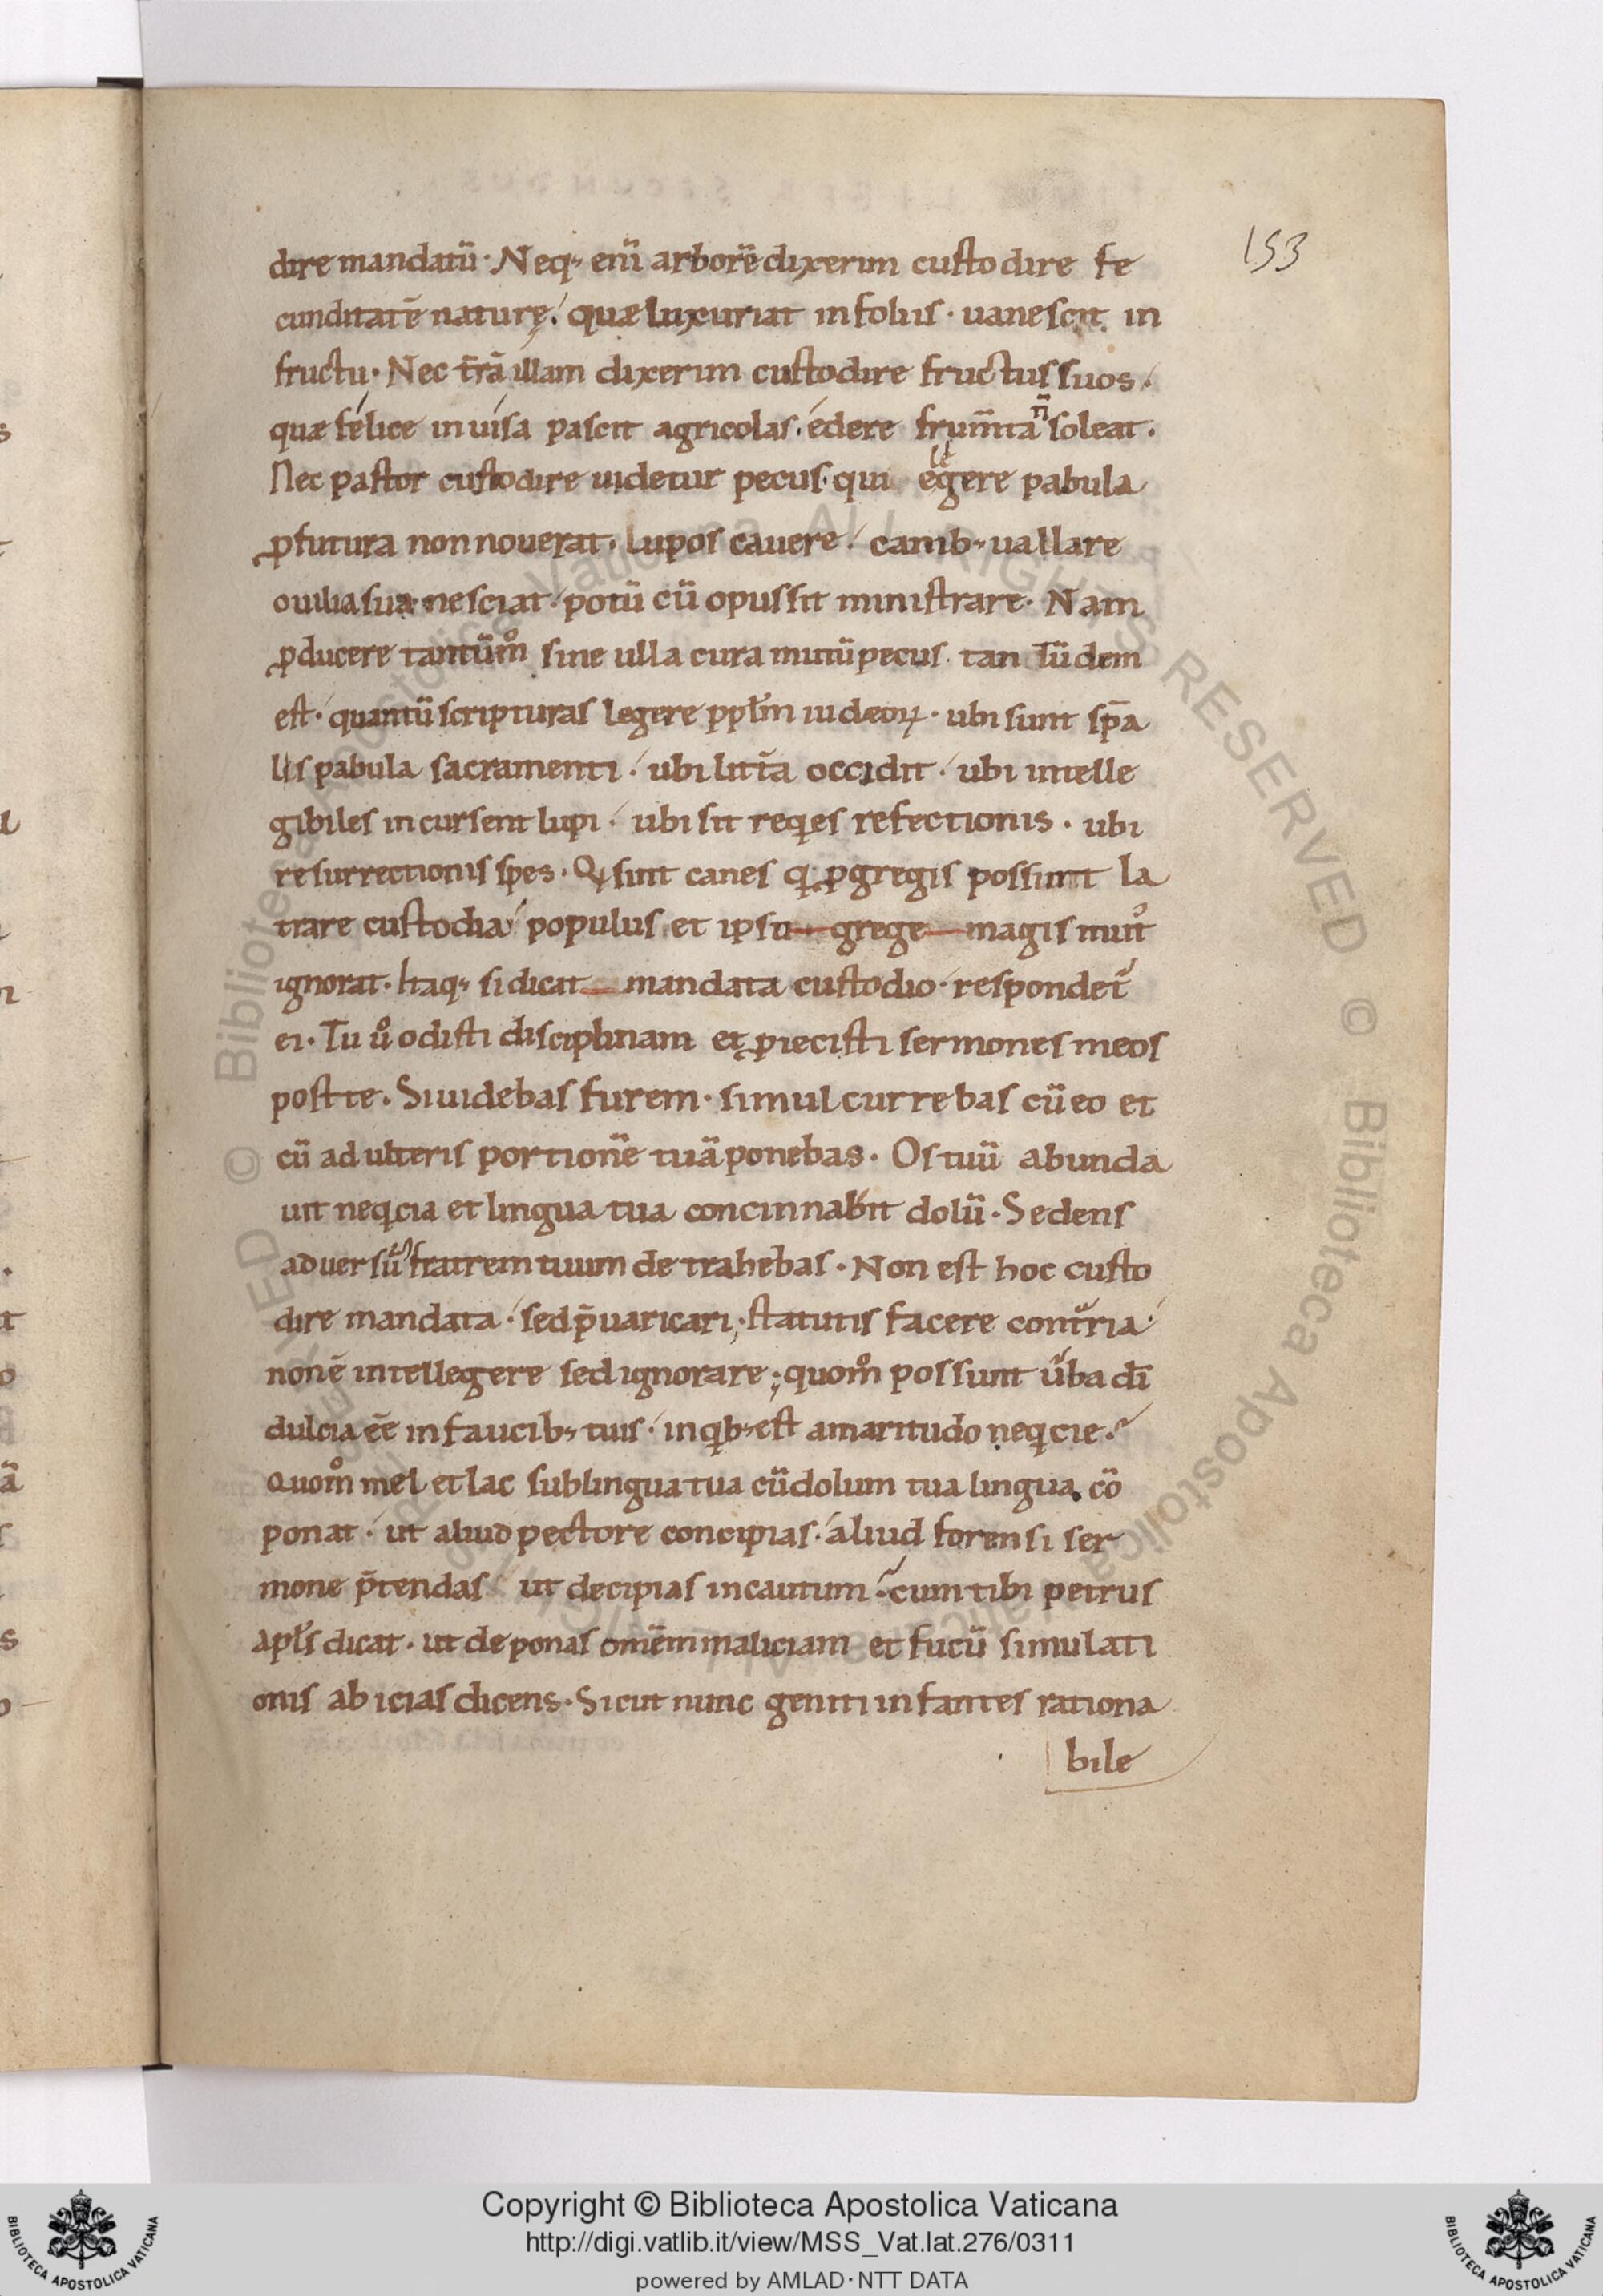 153
dire mandatū · Neq; enī arborē dixerim custodire fe
cunditatē naturę · quæ luxuriat in foliis · uanescit in
fructu · Nec tr̄ā illam dixerim custodire fructus suos ·
quæ felice inuisa pascit agricolas · edere frum̄ta n̄ soleat ·
Nec pastor custodire uidetur pecus · qui egere pabula
ꝓfutura non nouerat · lupos cauere · canib; uallare
ouilia sua nesciat · potū cū opus sit ministrare · Nam
ꝓducere tantūm̊ sine ulla cura mutū pecus · tantūdem
est · quantū scripturas legere ppl̄m iudæoꝝ · ubi sunt sp̄a
lis pabula sacramenti · ubi litt̄a occidit · ubi intelle
gibiles incursent lupi · ubi sit reqes refectionis · ubi
resurrectionis spes · Q sunt canes q ꝓ gregis possunt la
trare custodia · populus et ipsū grege magis
ignorat · Itaq; si dicat mandata custodio · respondet̄
ei · Tu ů odisti disciplinam et ꝓiecisti sermones meos
post te · Si uidebas furem · simul currebas cū eo et
cū adulteris portionē tuā ponebas · Os tuū abunda
uit neqcia et lingua tua concinnabit dolū · Sedens
aduersū fratrem tuum detrahebas · Non est hoc custo
dire mandata · sed p̄uaricari · statutis facere cont̄ria ·
non ē intellegere sed ignorare ; quom̊ possunt ūba dī
dulcia eē in faucib; tuis · in qb; est amaritudo neqcie ·
Quom̊ mel et lac sub lingua tua cū dolum tua lingua cō
ponat · ut aliud pectore concipias · aliud forensi ser
mone p̄tendas ut decipias incautum · cum tibi petrus
apl̄s dicat · ut deponas omēm maliciam et fucū simulati
onis abicias dicens · Sicut nunc geniti infantes rationa
bile
© Biblioteca Apostolica Vaticana ALL RIGHTS RESERVED © Biblioteca Apostolica Vaticana ALL RIGHTS RESERVED
Copyright © Biblioteca Apostolica Vaticana
http://digi.vatlib.it/view/MSS_Vat.lat.276/0311
powered by AMLAD·NTT DATA
BIBLIOTECA APOSTOLICA VATICANA
BIBLIOTECA APOSTOLICA VATICANA